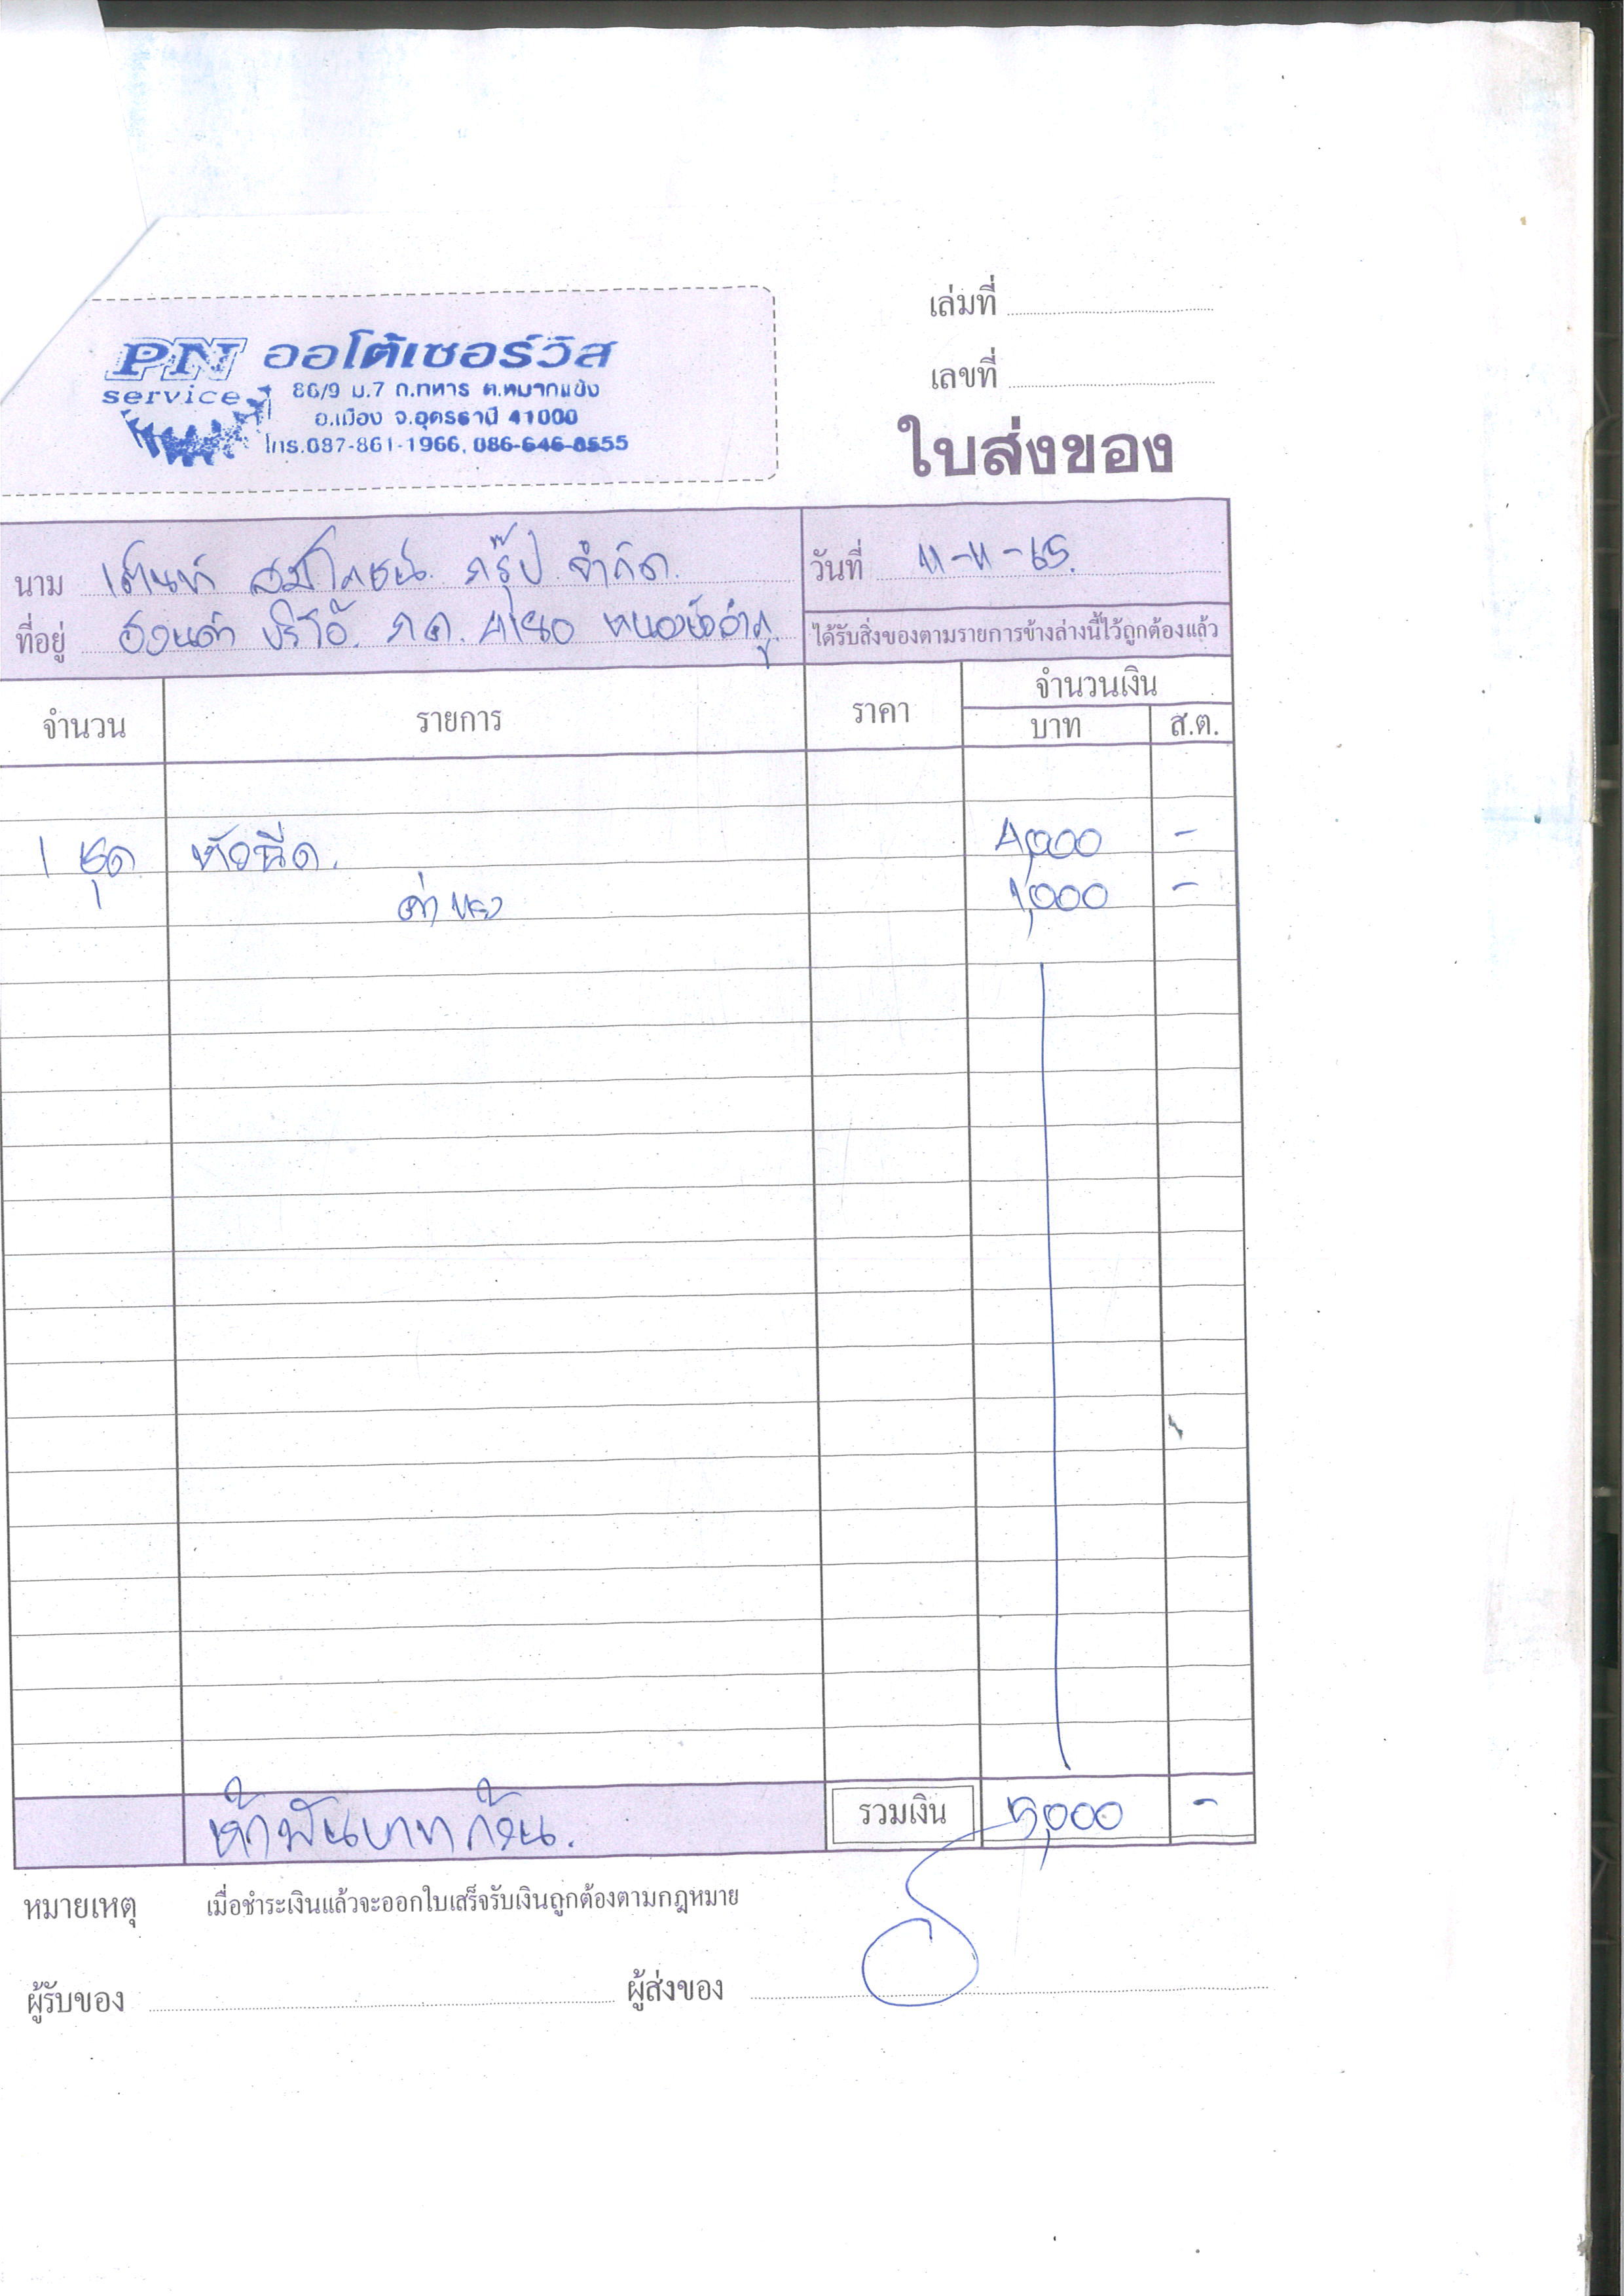 เล่มที่
เลขที่
PN service ออโต้เซอร์วิส
86/9 ม.7 ถ.ทหาร ต.หมากแข้ง
อ.เมือง จ.อุดรธานี 41000
โทร.087-861-1966, 086-646-8555
ใบส่งของ
นาม กรุ๊ป จำกัด.
วันที่ 11-11-65.
ที่อยู่ ฮอนด้า บริโอ้. กด. 4180 หนองบัวลำภู
ได้รับสิ่งของตามรายการข้างล่างนี้ไว้ถูกต้องแล้ว
จำนวน รายการ ราคา จำนวนเงิน
บาท ส.ต.
1 ชุด หัวฉีด. 4,000 -
ค่าแรง 1,000 -
ห้าพันบาทถ้วน. รวมเงิน 5,000 -
หมายเหตุ เมื่อชำระเงินแล้วจะออกใบเสร็จรับเงินถูกต้องตามกฎหมาย
ผู้รับของ ผู้ส่งของ